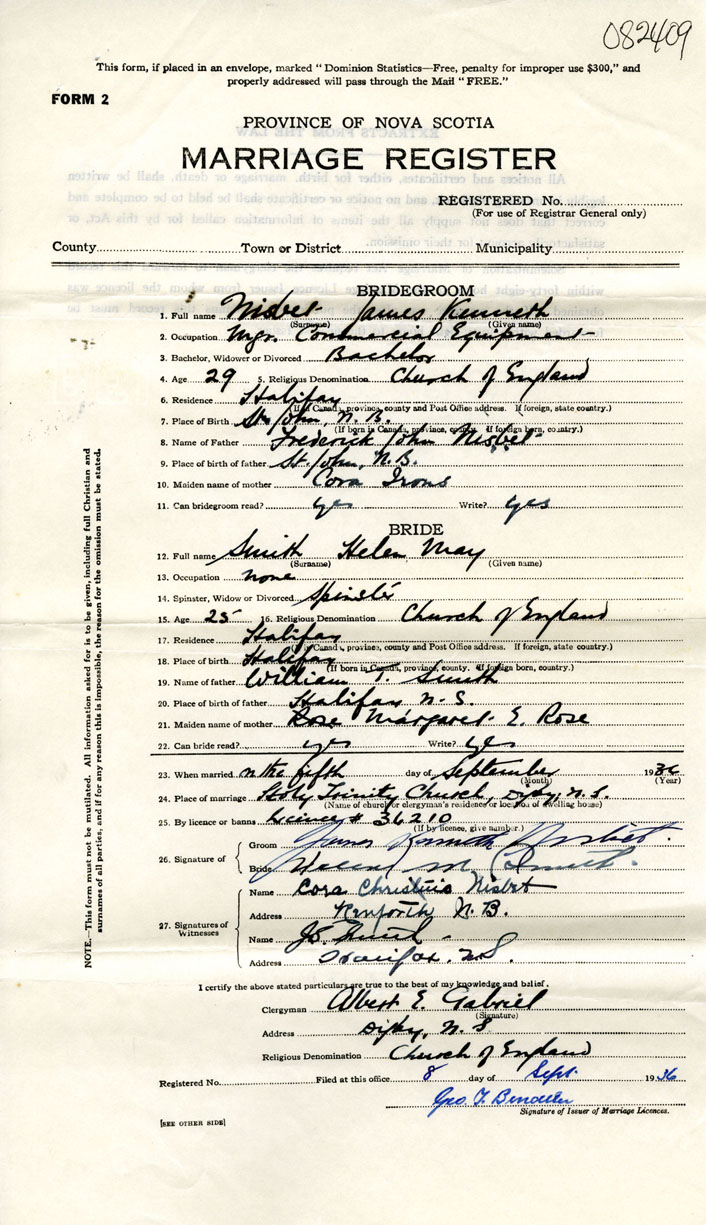 082409
This form, if placed in an envelope, marked "Dominion Statistics—Free, penalty for improper use $300," and
properly addressed will pass through the Mail "FREE."
FORM 2
PROVINCE OF NOVA SCOTIA
MARRIAGE REGISTER
REGISTERED No.
(For use of Registrar General only)
County Town or District Municipality
BRIDEGROOM
1. Full name Nisbet James Kenneth
(Surname) (Given name)
2. Occupation Mgr. Commercial Equipment
3. Bachelor, Widower or Divorced Bachelor
4. Age 29 5. Religious Denomination Church of England
6. Residence Halifax
(If in Canada, province, county and Post Office address. If foreign, state country.)
7. Place of Birth St. John, N.B.
(If born in Canada, province, county. If foreign born, country.)
8. Name of Father Frederick John Nisbet
9. Place of birth of father St. John, N.B.
10. Maiden name of mother Cora Irons
11. Can bridegroom read? yes Write? yes
BRIDE
12. Full name Smith Helen May
(Surname) (Given name)
13. Occupation none
14. Spinster, Widow or Divorced Spinster
15. Age 25 16. Religious Denomination Church of England
17. Residence Halifax
(If in Canada, province, county and Post Office address. If foreign, state country.)
18. Place of birth Halifax
(If born in Canada, province, county. If foreign born, country.)
19. Name of father William T. Smith
20. Place of birth of father Halifax N.S.
21. Maiden name of mother Rose Margaret E. Rose
22. Can bride read? yes Write? yes
23. When married n the fifth day of September 1936
(Month) (Year)
24. Place of marriage Holy Trinity Church, Digby, N.S.
(Name of church or clergyman's residence or location of dwelling house)
25. By licence or banns Licence # 36210
(If by licence, give number.)
26. Signature of
Groom James Kenneth Nisbet.
Bride Helen M. Smith.
27. Signatures of
Witnesses
Name Cora Christine Nisbet
Address Renforth N.B.
Name Smith
Address Halifax. N.S.
I certify the above stated particulars are true to the best of my knowledge and belief.
Clergyman Albert E. Gabriel
(Signature)
Address Digby, N.S
Religious Denomination Church of England
Registered No. Filed at this office 8 day of Sept. 1936
Geo. T.
Signature of Issuer of Marriage Licences.
[SEE OTHER SIDE]
NOTE.—This form must not be mutilated. All information asked for is to be given, including full Christian and
surnames of all parties, and if for any reason this is impossible, the reason for the omission must be stated.